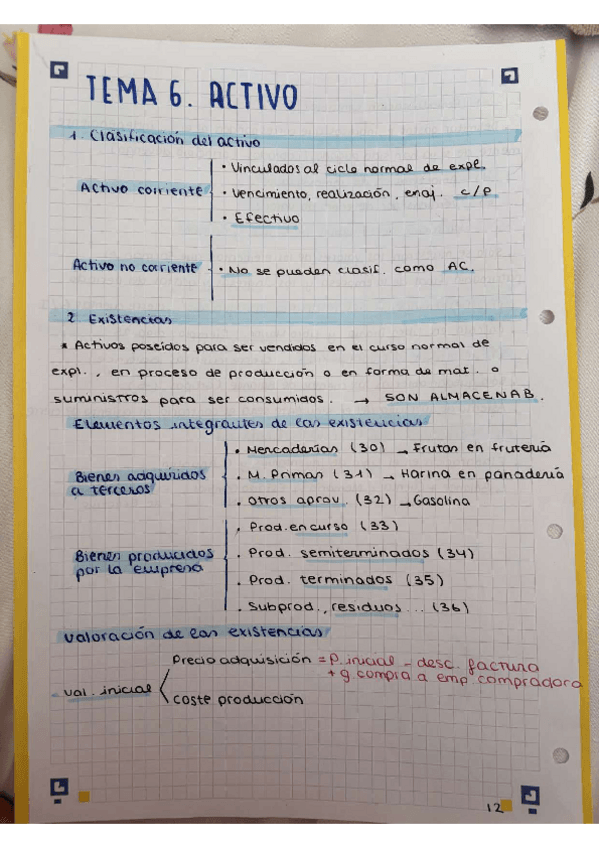 TEMA 6. ACTIVO
1. Clasificación del activo
Activo corriente
• Vinculados al ciclo normal de expl.
• Vencimiento, realización, enaj. c/p
• Efectivo
Activo no corriente
• No se pueden clasif. como AC.
2 Existencias
* Activos poseídos para ser vendidos en el curso normal de
expl., en proceso de producción o en forma de mat. o
suministros para ser consumidos. → SON ALMACENAB.
Elementos integrantes de las existencias
Bienes adquiridos
a terceros
• Mercaderías (30) → Frutas en frutería
• M. Primas (31) → Harina en panadería
• Otros aprov. (32) → Gasolina
Bienes producidos
por la empresa
• Prod. en curso (33)
• Prod. semiterminados (34)
• Prod. terminados (35)
• Subprod., residuos... (36)
Valoración de las existencias
Val. inicial
Precio adquisición = P. inicial - desc. factura
+ g compra a emp compradora
coste producción
12